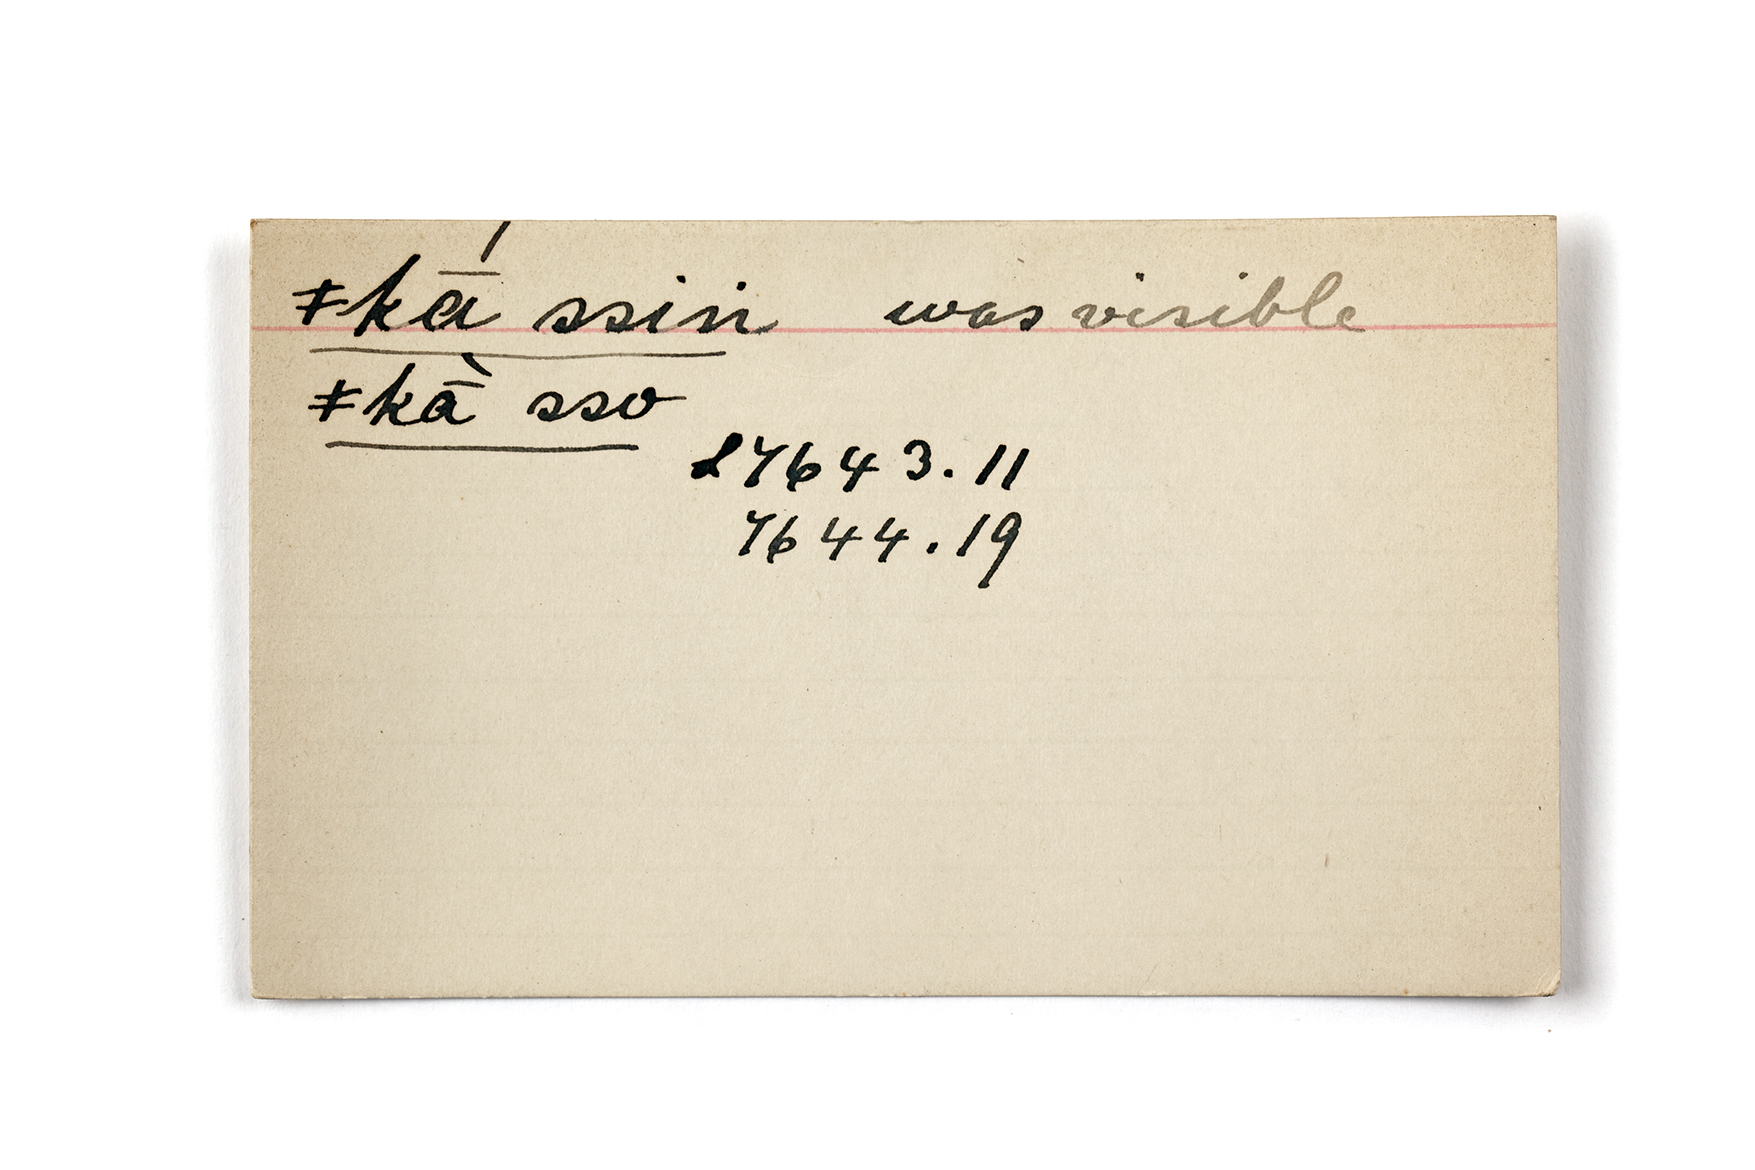 ǂkā́ ssin was visible
ǂkā̀ sso
L7643.11
7644.19